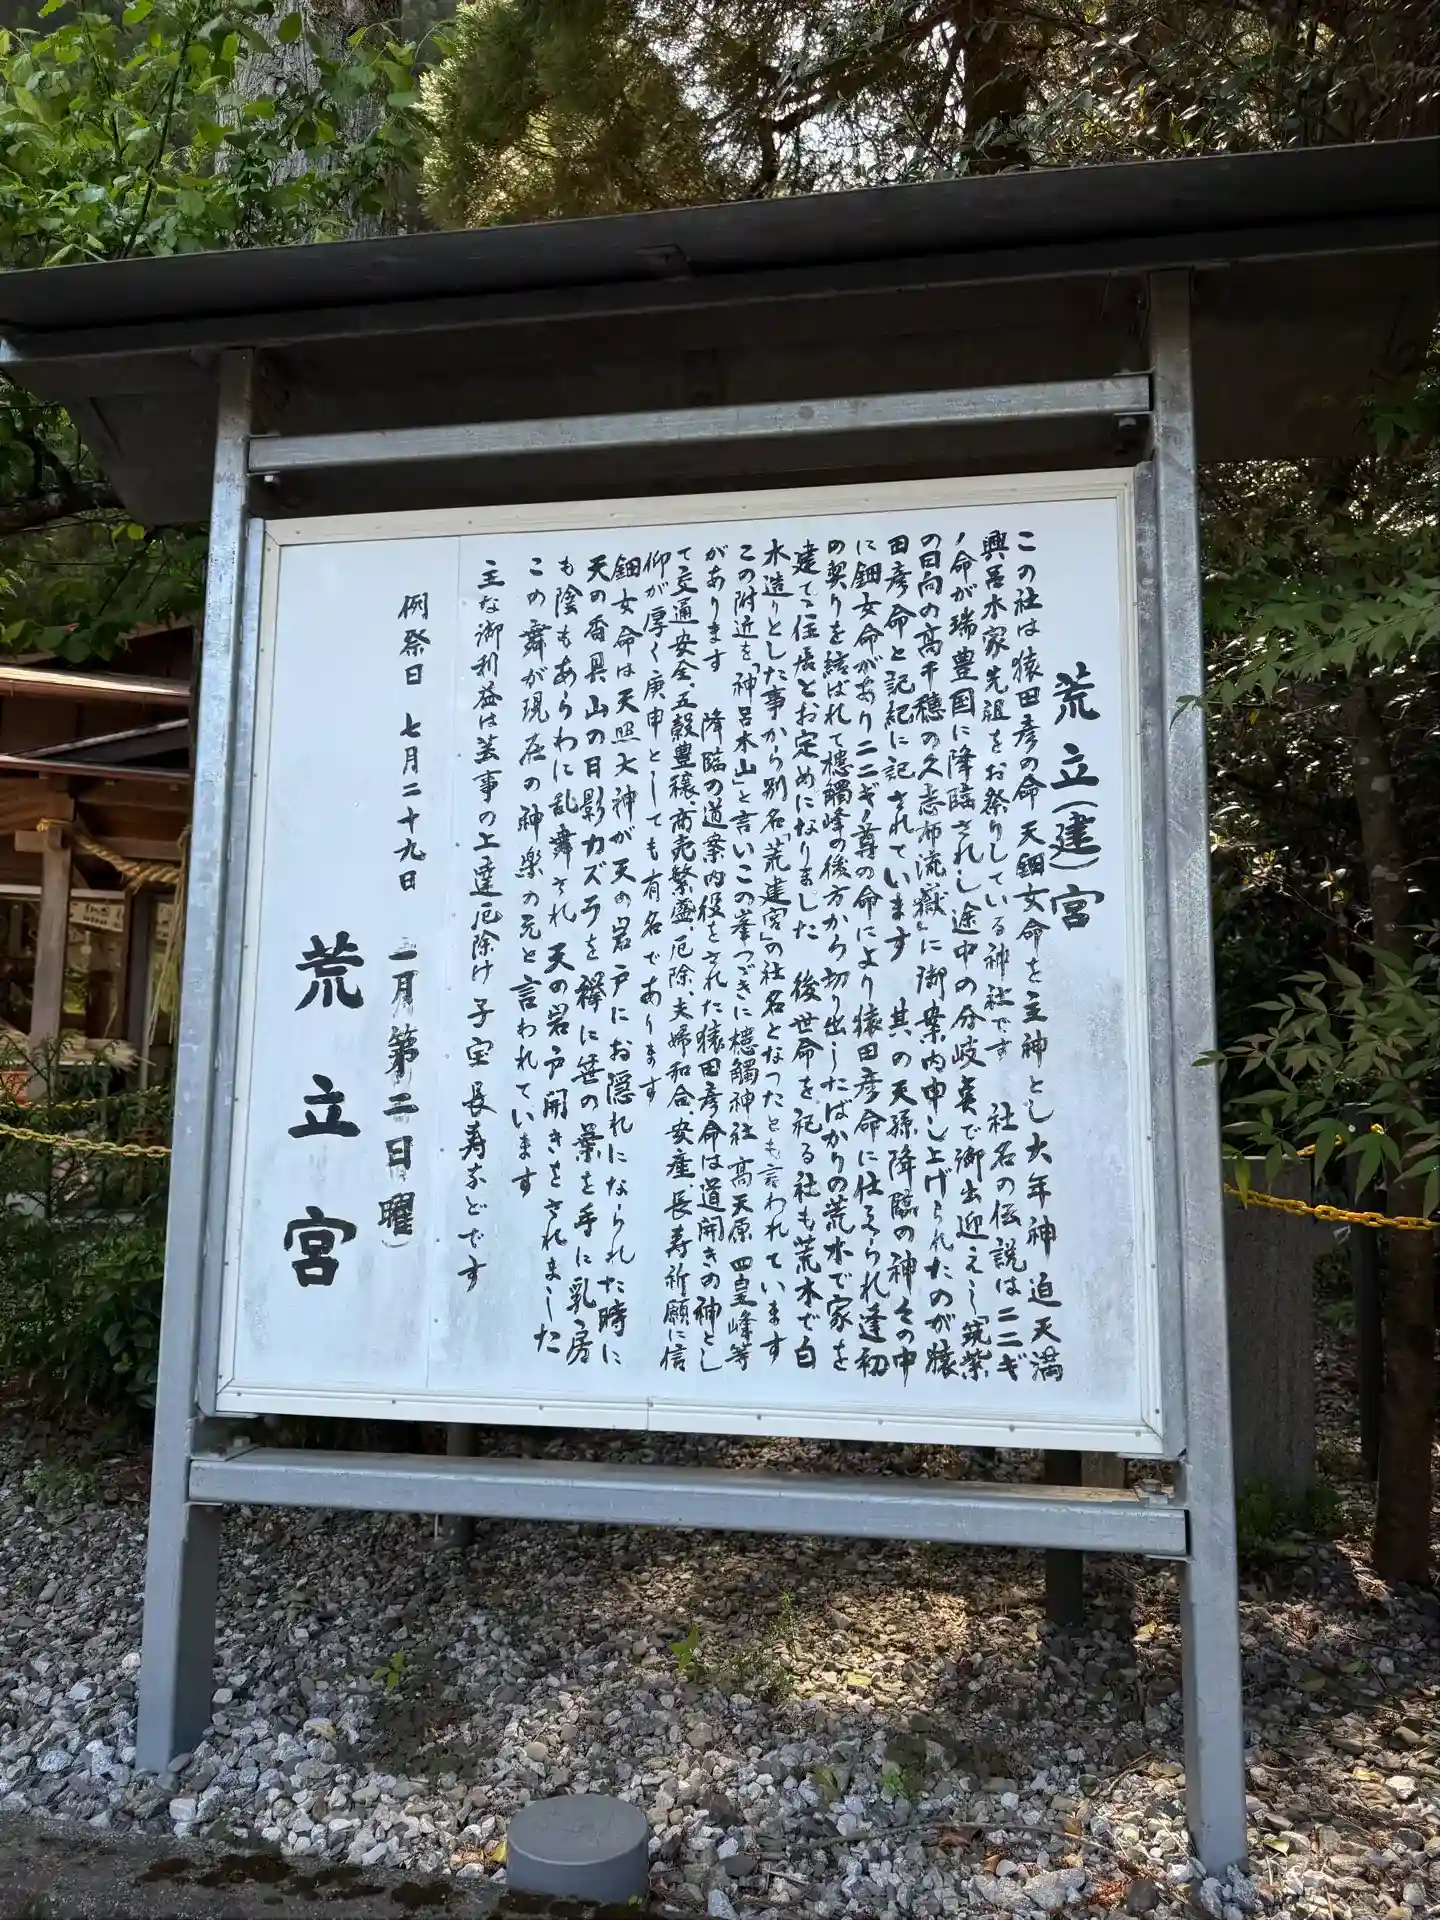 荒立(建)宮
この社は猿田彦の命 天鈿女命を主神とし大年神 迫天満
興呂木家先祖をお祭りしている神社です 社名の伝説はニニギ
ノ命が瑞豊国に降臨されし途中の分岐点で御出迎えし「筑紫
の日向の高千穂の久志布流嶽」に御案内申し上げられたのが猿
田彦命と記紀に記されています 其の天孫降臨の神々の中
に鈿女命があり ニニギノ尊の命により猿田彦命に仕えられ逢初
の契りを結ばれて槵觸峰の後方から切り出したばかりの荒木で家を
建てて住居とお定めになりました 後世命を祀る社も荒木で白
木造りとした事から別名「荒建宮」の社名となったとも言われています
この附近を「神呂木山」と言いこの峯つづきに槵觸神社 高天原 四皇峰等
があります 降臨の道案内役をされた猿田彦命は道開きの神とし
て交通安全、五穀豊穣、商売繁盛、厄除、夫婦和合、安産、長寿祈願に信
仰が厚く庚申としても有名であります
鈿女命は天照大神が天の岩戸にお隠れになられた時に
天の香具山の日影カズラを襷に笹の葉を手に乳房
も陰もあらわに乱舞され 天の岩戸開きをされました
この舞が現在の神楽の元と言われています
主な御利益は芸事の上達 厄除け 子宝 長寿などです
例祭日 七月二十九日
二月第二日曜
荒立宮